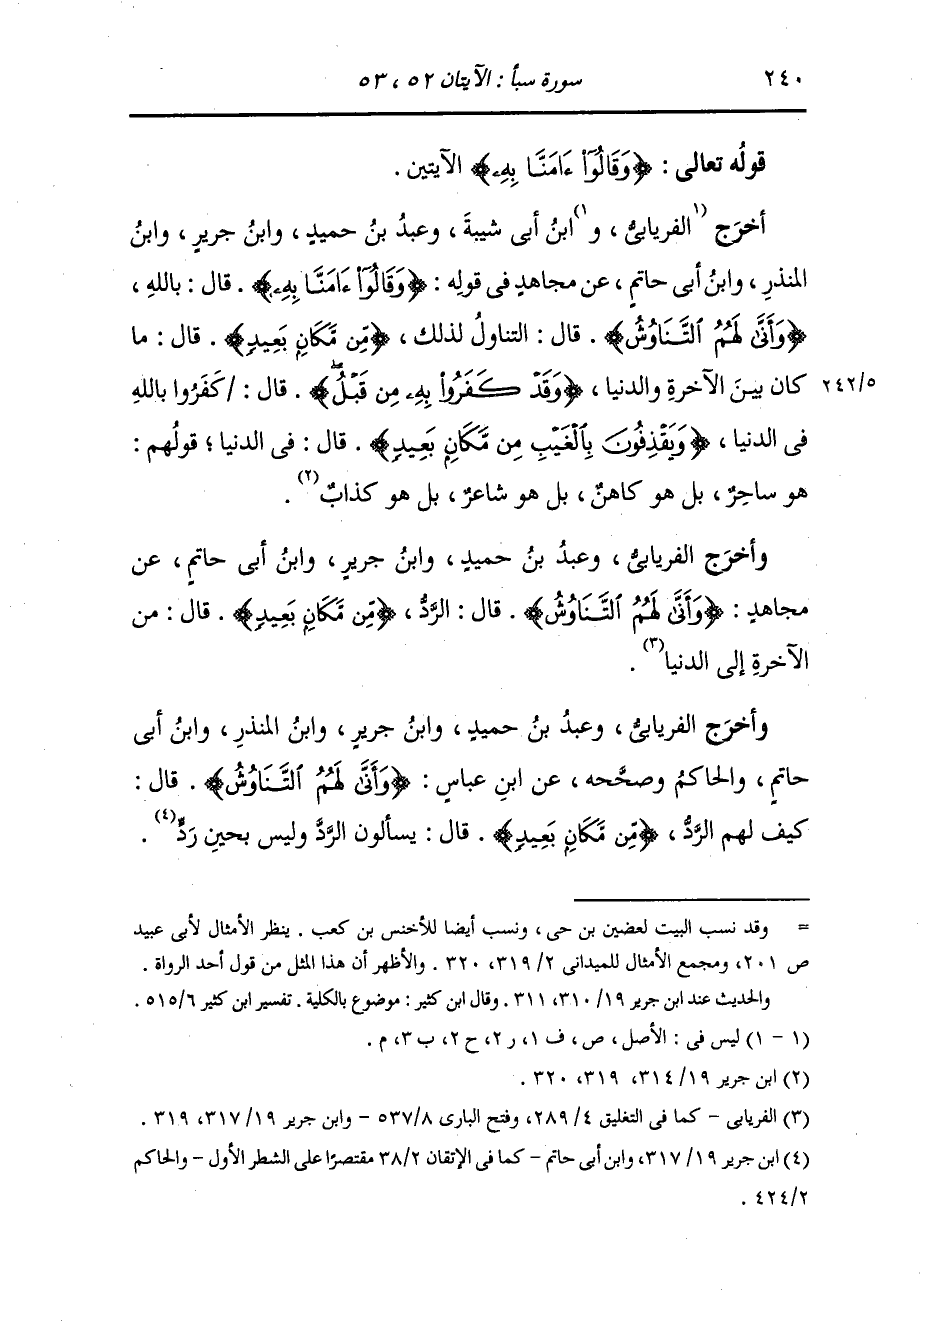 ٢٤٠ سورة سبأ : الآيتان ٥٢ ، ٥٣
قولُه تعالى : ﴿وَقَالُوٓا۟ ءَامَنَّا بِهِۦ﴾ الآيتين .
أخرَج (١الفريابىُّ ، و١) ابنُ أبى شيبةَ ، وعبدُ بنُ حميدٍ ، وابنُ جريرٍ ، وابنُ
المنذرِ ، وابنُ أبى حاتمٍ ، عن مجاهدٍ فى قولِه : ﴿وَقَالُوٓا۟ ءَامَنَّا بِهِۦ﴾ . قال : باللهِ ،
﴿وَأَنَّىٰ لَهُمُ ٱلتَّنَاوُشُ﴾ . قال : التناولُ لذلك ، ﴿مِن مَّكَانٍ بَعِيدٍ﴾ . قال : ما
٢٤٢/٥ كان بينَ الآخرةِ والدنيا ، ﴿وَقَدْ كَفَرُوا۟ بِهِۦ مِن قَبْلُۖ﴾ . قال : /كَفَرُوا باللهِ
فى الدنيا ، ﴿وَيَقْذِفُونَ بِٱلْغَيْبِ مِن مَّكَانٍ بَعِيدٍ﴾ . قال : فى الدنيا ؛ قولُهم :
هو ساحِرٌ ، بل هو كاهنٌ ، بل هو شاعرٌ ، بل هو كذابٌ(٢) .
وأخرَج الفريابىُّ ، وعبدُ بنُ حميدٍ ، وابنُ جريرٍ ، وابنُ أبى حاتمٍ ، عن
مجاهدٍ : ﴿وَأَنَّىٰ لَهُمُ ٱلتَّنَاوُشُ﴾ . قال : الرَّدُّ ، ﴿مِن مَّكَانٍ بَعِيدٍ﴾ . قال : من
الآخرةِ إلى الدنيا(٣) .
وأخرَج الفريابىُّ ، وعبدُ بنُ حميدٍ ، وابنُ جريرٍ ، وابنُ المنذرِ ، وابنُ أبى
حاتمٍ ، والحاكمُ وصحَّحه ، عن ابنِ عباسٍ : ﴿وَأَنَّىٰ لَهُمُ ٱلتَّنَاوُشُ﴾ . قال :
كيف لهم الرَّدُّ ، ﴿مِن مَّكَانٍ بَعِيدٍ﴾ . قال : يسألون الرَّدَّ وليس بحينِ رَدٍّ(٤) .
= وقد نسب البيت لعضين بن حى ، ونسب أيضا للأخنس بن كعب . ينظر الأمثال لأبى عبيد
ص ٢٠١، ومجمع الأمثال للميدانى ٢/ ٣١٩، ٣٢٠ . والأظهر أن هذا المثل من قول أحد الرواة .
والحديث عند ابن جرير ١٩/ ٣١٠، ٣١١ . وقال ابن كثير : موضوع بالكلية . تفسير ابن كثير ٥١٥/٦ .
(١ - ١) ليس فى : الأصل ، ص ، ف ١، ر ٢، ح ٢، ب ٣، م .
(٢) ابن جرير ١٩/ ٣١٤، ٣١٩، ٣٢٠ .
(٣) الفريابى - كما فى التغليق ٤/ ٢٨٩، وفتح البارى ٥٣٧/٨ - وابن جرير ١٩/ ٣١٧، ٣١٩ .
(٤) ابن جرير ١٩/ ٣١٧، وابن أبى حاتم - كما فى الإتقان ٣٨/٢ مقتصرًا على الشطر الأول - والحاكم
٤٢٤/٢ .